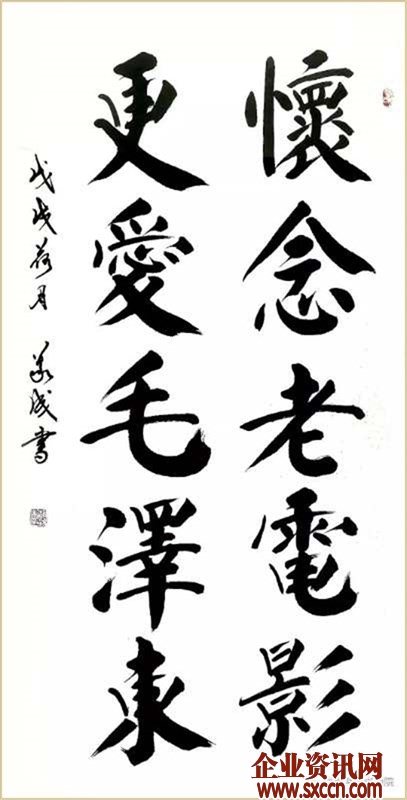 懷念老電影
更愛毛澤東
戊戌荷月 成書
企业资讯网
WWW.SXCCN.COM